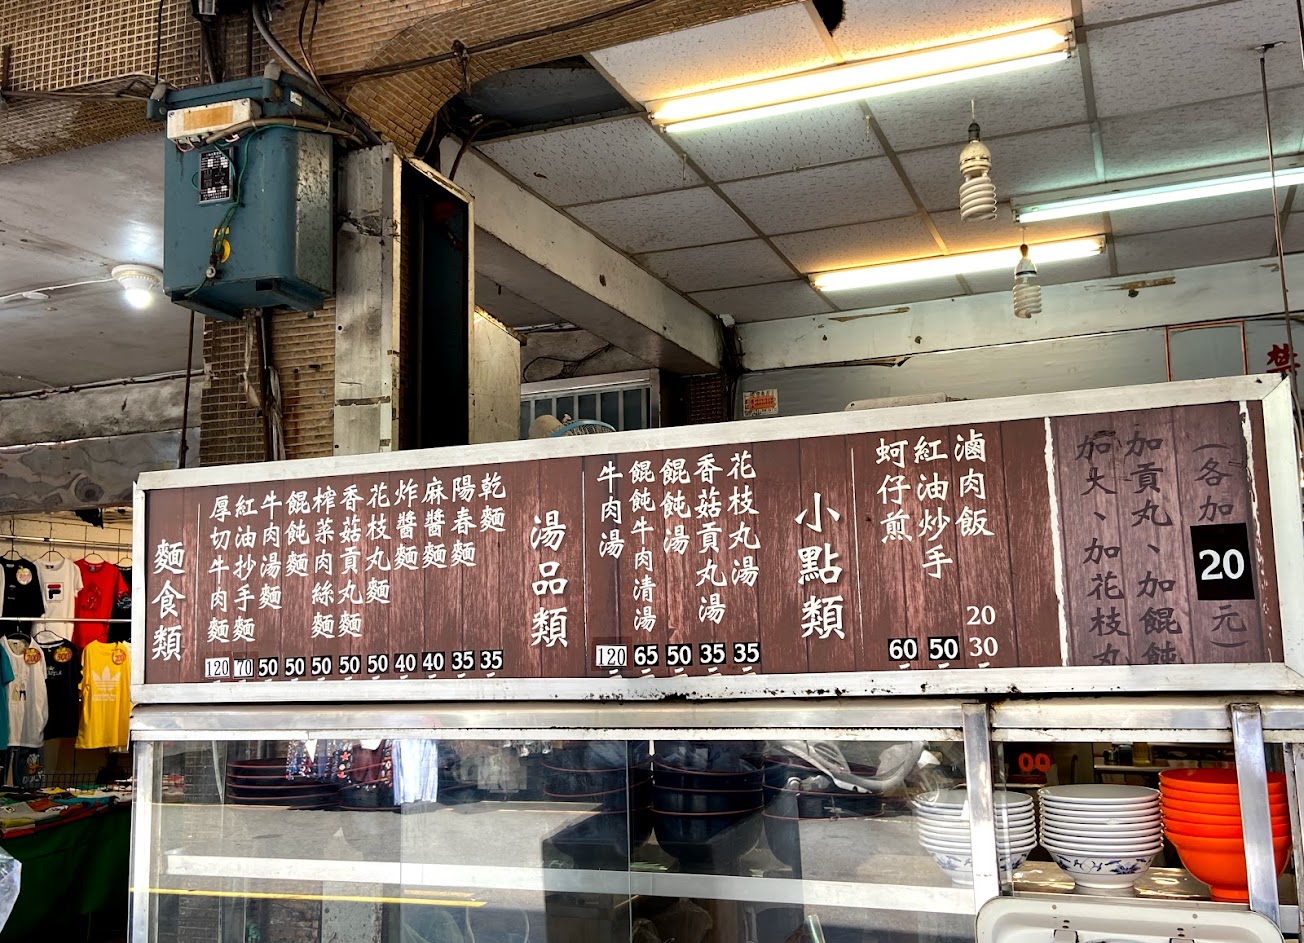 麵食類
厚切牛肉麵 120
紅油抄手麵 70
牛肉湯麵 50
餛飩麵 50
榨菜肉絲麵 50
香菇貢丸麵 50
花枝丸麵 50
炸醬麵 40
麻醬麵 40
陽春麵 35
乾麵 35
湯品類
牛肉湯 120
餛飩牛肉清湯 65
餛飩湯 50
香菇貢丸湯 35
花枝丸湯 35
小點類
蚵仔煎 60
紅油炒手 50
滷肉飯 20 30
加大、加花枝丸
加貢丸、加餛飩
(各加20元)